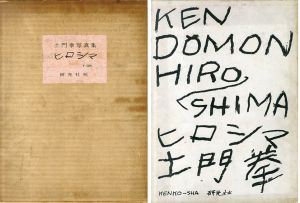 土門拳写真集
ヒロシマ
研光社版
KEN
DOMON
HIRO
SHIMA
ヒロシマ
土門拳
KENKO-SHA 研光社